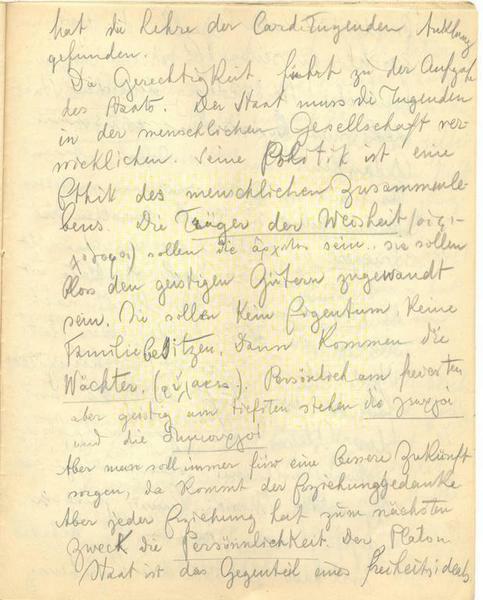 hat die Lehre der Cardtugenden Anklang
gefunden.
Die Gerechtigkeit führt zu der Aufgabe
des Staats. Der Staat muss die Tugenden
in der menschlichen Gesellschaft ver-
wirklichen. Seine Politik ist eine
Ethik des menschlichen Zusammenle-
bens. Die Träger der Weisheit
sollen die sein. sie sollen
blos den geistigen Gütern zugewandt
sein. Sie sollen kein Eigentum, keine
Familie besitzen. Dann kommen die
Wächter. Persönlich am freiesten
aber geistig am tiefsten stehen die
und die
Aber man soll immer für eine bessere Zukunft
sorgen, da kommt der Erziehungsgedanke
Aber jeder Erziehung hat zum nächsten
Zweck die Persönnlichkeit. Der Platon
Staat ist das Gegenteil eines Freiheitsideals